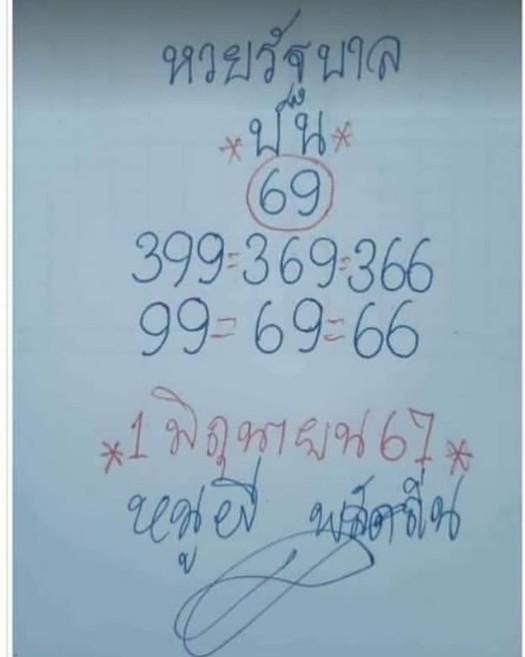 หวยรัฐบาล
*ปั่น*
69
399=369=366
99=69=66
*1 มิถุนายน 67*
หนูผี พลัดถิ่น